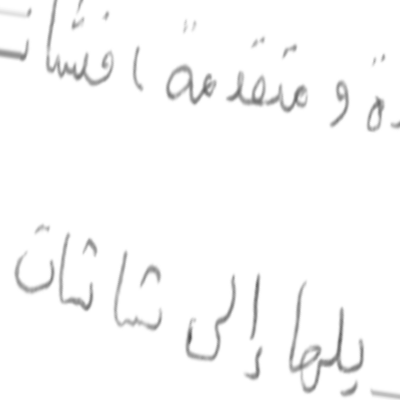 دة و متقدمة ، فشات
يلها إلى شا شات